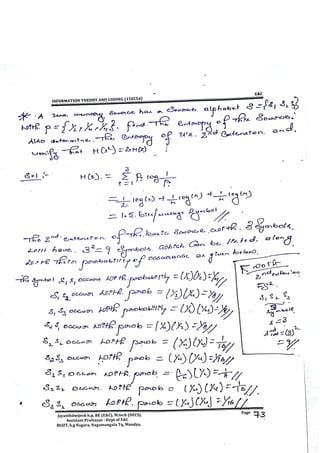 E&C
INFORMATION THEORY AND CODING (15EC54)
* A zero memory source has a source alphabet S = {S1, S2, S3}
with P = {1/2, 1/4, 1/4}. Find the entropy of the source.
Also determine the entropy of its 2nd extension and
verify that H(S²) = 2H(S)
Sol :- H(S) = 3 Σ i=1 Pi log 1/Pi
= 1/2 log(2) + 1/4 log(4) + 1/4 log(4)
= 1.5 bits/message symbol //
The 2nd extension of the basic source with 3 symbols,
will have 3² = 9 symbols which can be listed along
with their probability of occurrence as given below,
The symbol S1 S1 occurs with probability = (1/2)(1/2) = 1/4 //
S1 S2 occurs with prob = (1/2)(1/4) = 1/8 //
S1 S3 occurs with probability = (1/2)(1/4) = 1/8 //
S2 S1 occurs with prob = (1/4)(1/2) = 1/8 //
S2 S2 occurs with prob = (1/4)(1/4) = 1/16 //
S2 S3 occurs with prob = (1/4)(1/4) = 1/16 //
S3 S1 occurs with prob = (1/4)(1/2) = 1/8 //
S3 S2 occurs with prob = (1/4)(1/4) = 1/16 //
S3 S3 occurs with prob = (1/4)(1/4) = 1/16 //
2nd extension
S1 S2 S3
symbols
= 3
= 9 //
Jayanthdwijesh h.p, BE (E&C), M.tech (DECS),
Assistant Professor - Dept of E&C
BGSIT, b.g Nagara, Nagamangala Tq, Mandya.
Page 73